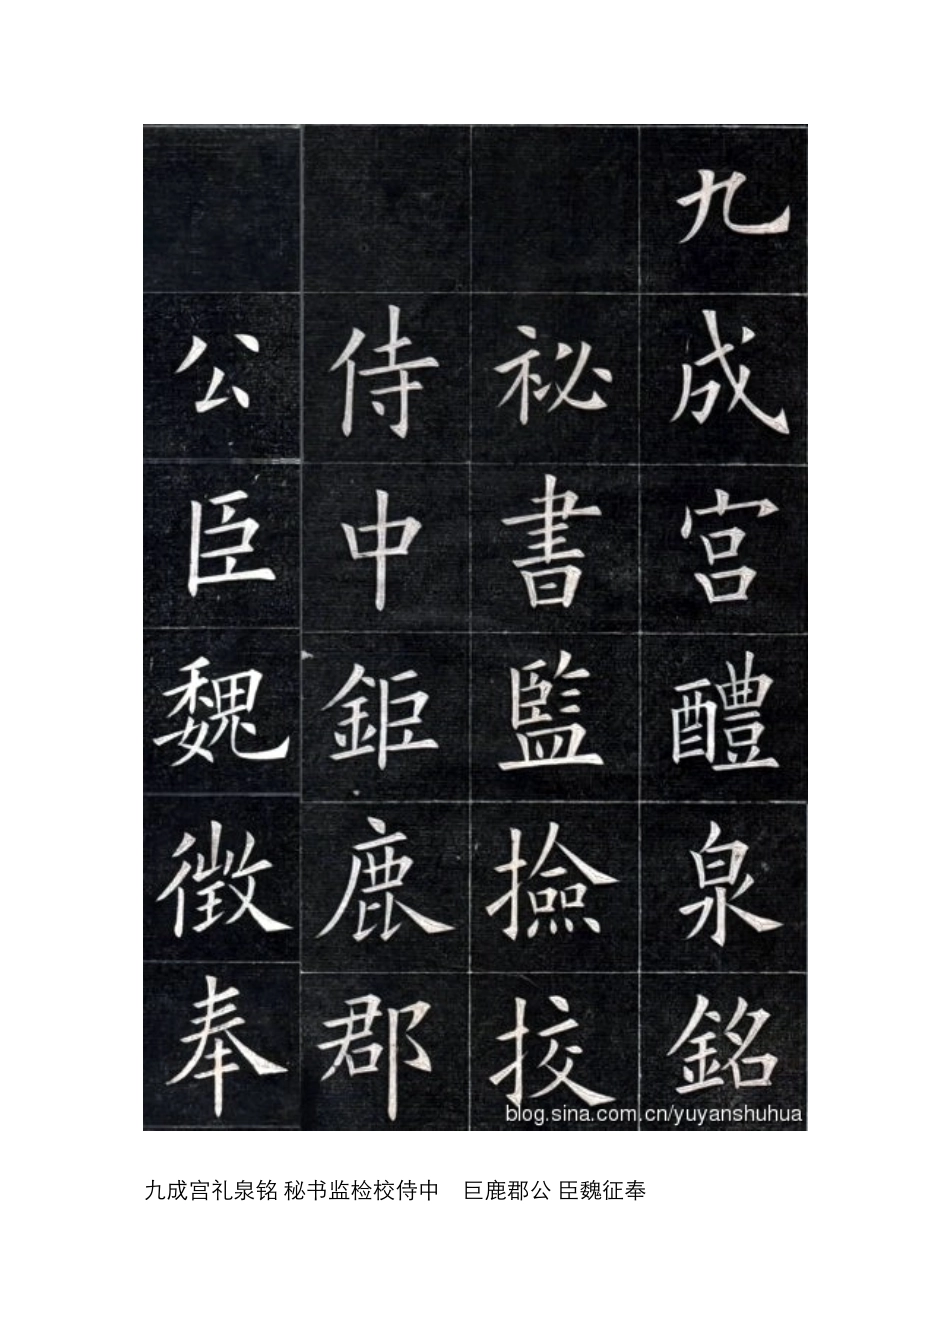 九成宫醴泉銘
祕書監撿挍
侍中鉅鹿郡
公臣魏徵奉
blog.sina.com.cn/yuyanshuhua
九成宫礼泉铭 秘书监检校侍中　巨鹿郡公 臣魏征奉